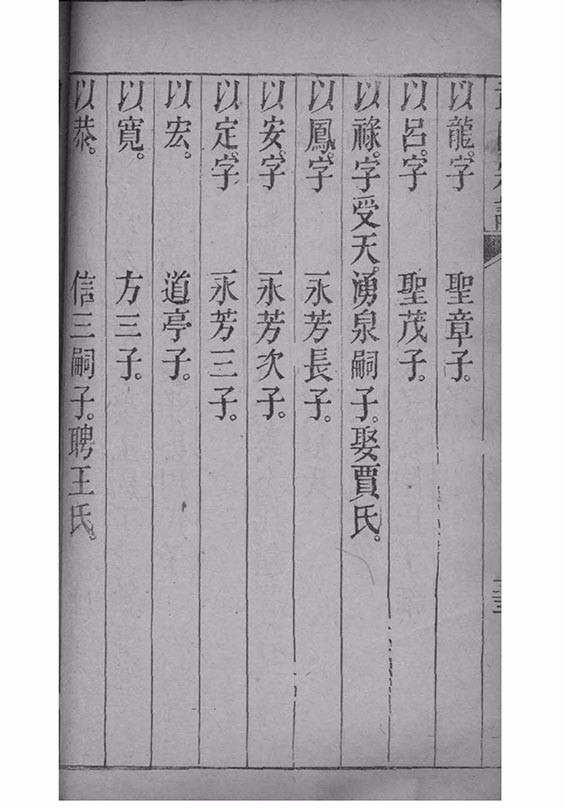 以龍。字　聖章子。
以呂。字　聖茂子。
以祿。字受天。湧泉嗣子。娶賈氏。
以鳳。字　永芳長子。
以安。字　永芳次子。
以定。字　永芳三子。
以宏。　道亭子。
以寬。　方三子。
以恭。　信三嗣子。聘王氏。